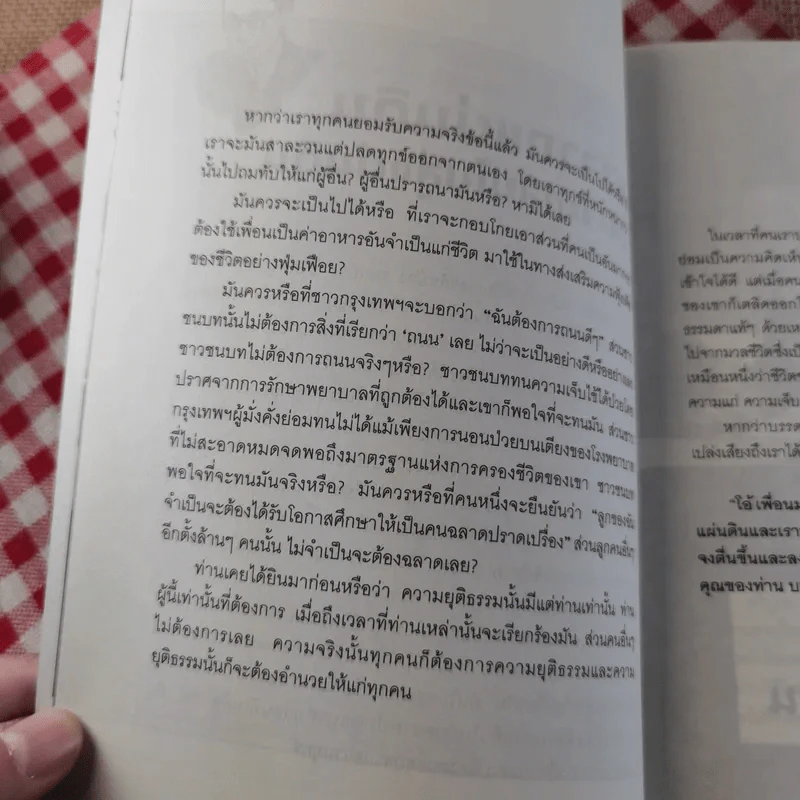 หากว่าเราทุกคนยอมรับความจริงข้อนี้แล้ว มันควรจะเป็นไปได้หรือ
เราจะมันสาละวนแต่ปลดทุกข์ออกจากตนเอง โดยเอาทุกข์ที่หนัก
นั้นไปถมทับให้แก่ผู้อื่น? ผู้อื่นปรารถนามันหรือ? หามิได้เลย
มันควรจะเป็นไปได้หรือ ที่เราจะกอบโกยเอาส่วนที่คนเป็นอันมาก
ต้องใช้เพื่อนเป็นค่าอาหารอันจำเป็นแก่ชีวิต มาใช้ในทางส่งเสริมความ
ของชีวิตอย่างฟุ่มเฟือย?
มันควรหรือที่ชาวกรุงเทพฯจะบอกว่า “ฉันต้องการถนนดีๆ” ส่วนชาว
ชนบทนั้นไม่ต้องการสิ่งที่เรียกว่า ‘ถนน’ เลย ไม่ว่าจะเป็นอย่างดีหรืออย่าง
ชาวชนบทไม่ต้องการถนนจริงๆหรือ? ชาวชนบททนความเจ็บไข้ได้ป่วยโดย
ปราศจากการรักษาพยาบาลที่ถูกต้องได้และเขาก็พอใจที่จะทนมัน ส่วนชาว
กรุงเทพฯผู้มั่งคั่งย่อมทนไม่ได้แม้เพียงการนอนป่วยบนเตียงของโรงพยาบาล
ที่ไม่สะอาดหมดจดพอถึงมาตรฐานแห่งการครองชีวิตของเขา ชาวชนบท
พอใจที่จะทนมันจริงหรือ? มันควรหรือที่คนหนึ่งจะยืนยันว่า “ลูกของฉัน
จำเป็นจะต้องได้รับโอกาสศึกษาให้เป็นคนฉลาดปราดเปรื่อง” ส่วนลูกคนอื่นๆ
อีกตั้งล้านๆ คนนั้น ไม่จำเป็นจะต้องฉลาดเลย?
ท่านเคยได้ยินมาก่อนหรือว่า ความยุติธรรมนั้นมีแต่ท่านเท่านั้น ท่าน
ผู้นี้เท่านั้นที่ต้องการ เมื่อถึงเวลาที่ท่านเหล่านั้นจะเรียกร้องมัน ส่วนคนอื่นๆ
ไม่ต้องการเลย ความจริงนั้นทุกคนก็ต้องการความยุติธรรมและความ
ยุติธรรมนั้นก็จะต้องอำนวยให้แก่ทุกคน
ในเวลาที่คนเรา
ย่อมเป็นความคิดเห็น
เข้าใจได้ดี แต่เมื่อคน
ของเขาก็เตลิดออก
ธรรมดาแท้ๆ ด้วยเห
ไปจากมวลชีวิตซึ่งเป็
เหมือนหนึ่งว่าชีวิตข
ความแก่ ความเจ็บ
หากว่าบรรด
เปล่งเสียงถึงเราได้
“โอ้ เพื่อนม
แผ่นดินและเรา
จงตื่นขึ้นและล
คุณของท่าน บ